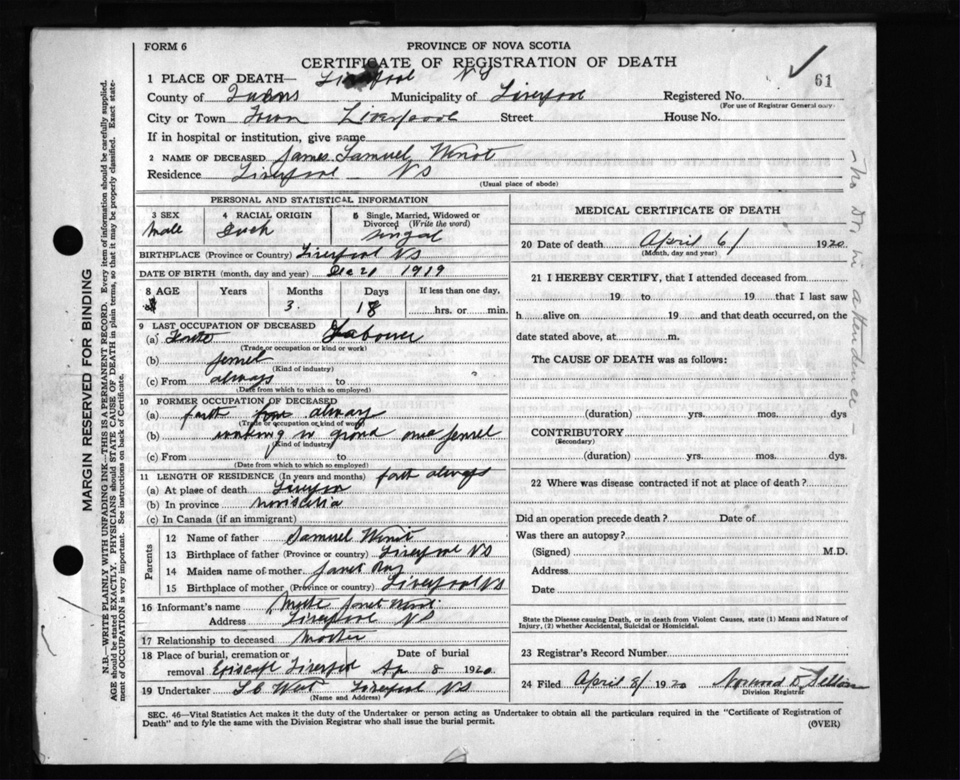 FORM 6
PROVINCE OF NOVA SCOTIA
CERTIFICATE OF REGISTRATION OF DEATH
61
1 PLACE OF DEATH— Liverpool NS
County of Municipality of Liverpool Registered No.
(For use of Registrar General only.
City or Town Town Liverpool Street House No.
If in hospital or institution, give name
2 NAME OF DECEASED James Samuel
Residence Liverpool — NS
(Usual place of abode)
PERSONAL AND STATISTICAL INFORMATION
3 SEX 4 RACIAL ORIGIN 5 Single, Married, Widowed or Divorced (Write the word)
Male singal
BIRTHPLACE (Province or Country) Liverpool NS
DATE OF BIRTH (month, day and year) Dec 20 1919
8 AGE Years Months Days If less than one day,
3 18 hrs. or min.
9 LAST OCCUPATION OF DECEASED
(a) Labourer
(Trade or occupation or kind of work)
(b)
(Kind of industry)
(c) From always to
(Date from which to which so employed)
10 FORMER OCCUPATION OF DECEASED
(a) always
(Trade or occupation or kind of work)
(b) working
(Kind of industry)
(c) From to
(Date from which to which so employed)
11 LENGTH OF RESIDENCE (In years and months) always
(a) At place of death
(b) In province
(c) In Canada (if an immigrant)
Parents
12 Name of father Samuel
13 Birthplace of father (Province or country) Liverpool NS
14 Maiden name of mother Janet
15 Birthplace of mother (Province or country) Liverpool NS
16 Informant's name Janet
Address Liverpool NS
17 Relationship to deceased Mother
18 Place of burial, cremation or removal Liverpool Date of burial Ap 8 1920
19 Undertaker Liverpool NS
(Name and Address)
MEDICAL CERTIFICATE OF DEATH
20 Date of death April 6/ 1920
(Month, day and year)
21 I HEREBY CERTIFY, that I attended deceased from
19 to 19 that I last saw
h alive on 19 and that death occurred, on the
date stated above, at m.
The CAUSE OF DEATH was as follows:
(duration) yrs. mos. dys
CONTRIBUTORY
(Secondary)
(duration) yrs. mos. dys.
22 Where was disease contracted if not at place of death?
Did an operation precede death? Date of
Was there an autopsy?
(Signed) M.D.
Address
Date
State the Disease causing Death, or in death from Violent Causes, state (1) Means and Nature of
Injury, (2) whether Accidental, Suicidal or Homicidal.
23 Registrar's Record Number
24 Filed April 8/ 1920
Division Registrar
—No Dr. in attendance—
SEC. 46—Vital Statistics Act makes it the duty of the Undertaker or person acting as Undertaker to obtain all the particulars required in the "Certificate of Registration of
Death" and to fyle the same with the Division Registrar who shall issue the burial permit.
(OVER)
MARGIN RESERVED FOR BINDING
N.B.—WRITE PLAINLY WITH UNFADING INK—THIS IS A PERMANENT RECORD. Every item of information should be carefully supplied.
AGE should be stated EXACTLY. PHYSICIANS should STATE CAUSE OF DEATH in plain terms, so that it may be properly classified. Exact state-
ment of OCCUPATION is very important. See instructions on back of Certificate.